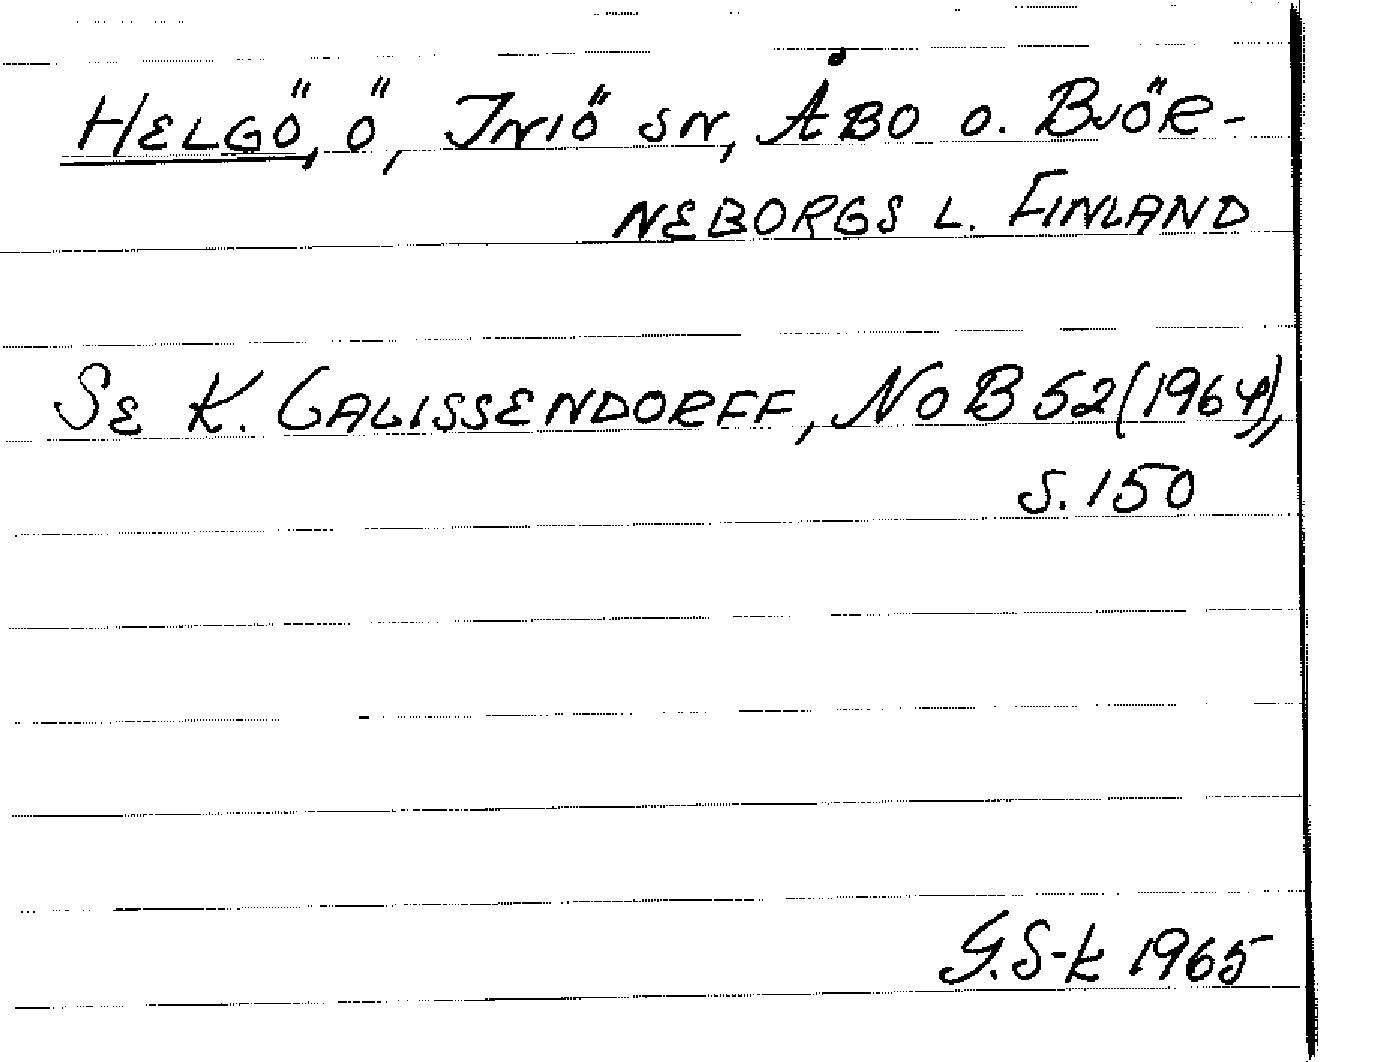 HELGÖ, Ö, INIÖ SN, ÅBO O. BJÖR-
NEBORGS L. FINLAND
SE K. CALISSENDORFF, NoB 52 (1964),
S. 150
G. S-k 1965